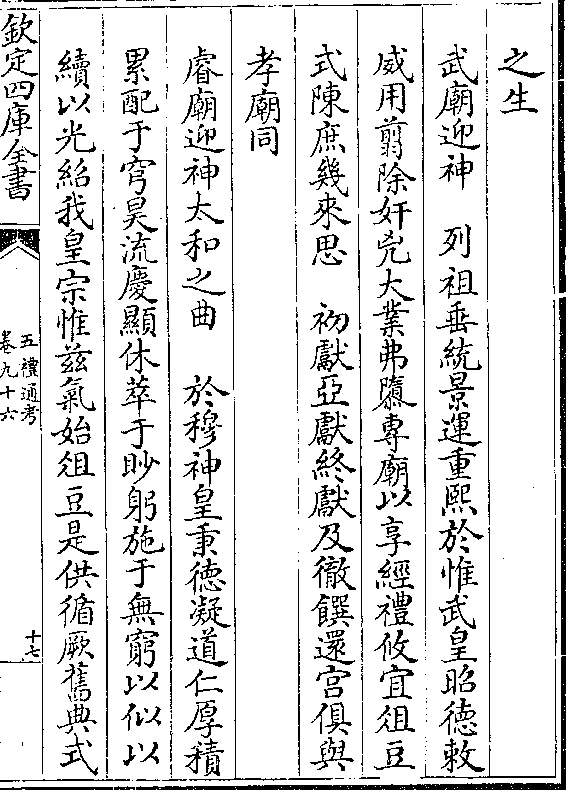 之生
武廟迎神　列祖垂統景運重熙於惟武皇昭德敕
威用翦除奸兇大業弗隳專廟以享經禮攸宜俎豆
式陳庶幾來思　初獻亞獻終獻及徹饌還宫俱與
孝廟同
睿廟迎神太和之曲　於穆神皇秉德凝道仁厚積
累配于穹昊流慶顯休萃于眇躬施于無窮以似以
續以光紹我皇宗惟兹氣始俎豆是供循厥舊典式
欽定四庫全書
五禮通考
卷九十六
十七